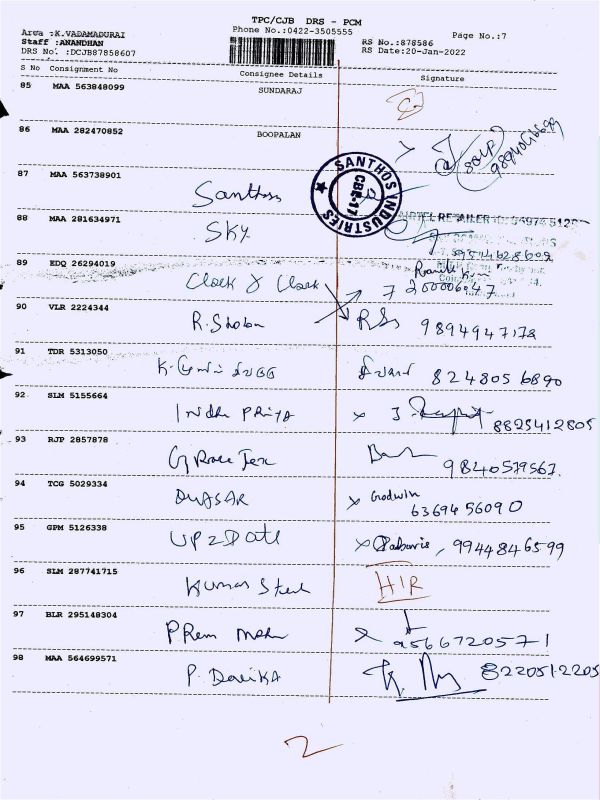 TPC/CJB DRS - PCM
Area :K.VADAMADURAI Phone No.:0422-3505555 Page No.:7
Staff :ANANDHAN RS No.:878586
DRS No. :DCJB87858607 RS Date:20-Jan-2022
S No Consignment No Consignee Details Signature
85 MAA 563848099 SUNDARAJ
86 MAA 282470852 BOOPALAN
9894066699
87 MAA 563738901 Santhos
SANTHOS INDUSTRIES CBE-17
88 MAA 281634971 SKY
AIRTEL RETAILER
89 EDQ 26294019 Clock & Clock
7200006047
90 VLR 2224344 R. Shoba 9894947178
91 TDR 5313050 8248056890
92 SLM 5155664 Indhu Priya x J. 8825412805
93 RJP 2857878 Tex 9840579567.
94 TCG 5029334 QUASAR x Godwin
6369456090
95 GPM 5126338 UP2Date x 9944846599
96 SLM 287741715 Kumar Steel
97 BLR 295148304 P Rem Mohn x 9566720571
98 MAA 564699571 P. Davika 8220512205
2